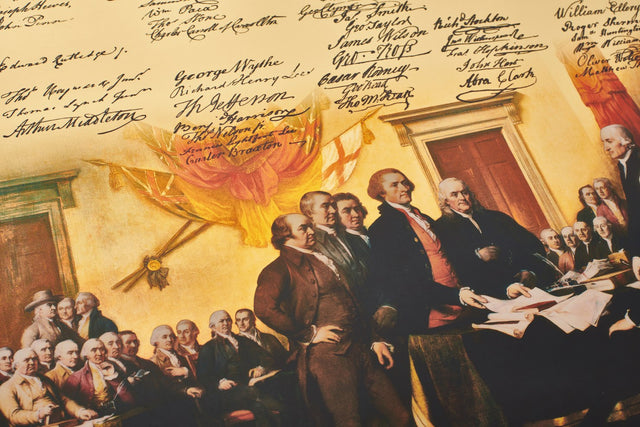 Joseph Hewes,
Edward Rutledge /.
Thos Heyward Junr.
Thomas Lynch Junr.
Arthur Middleton
Wm Paca
Thos Stone
Charles Carroll of Carrollton
George Wythe
Richard Henry Lee
Th Jefferson
Benj Harrison
Thos Nelson jr.
Francis Lightfoot Lee
Carter Braxton
Jas. Smith
Geo. Taylor
James Wilson
Geo. Ross
Caesar Rodney
Geo Read
Tho M:Kean
Richd. Stockton
Jno Witherspoon
Fras. Hopkinson
John Hart
Abra Clark
William Ellery
Roger Sherman
Saml Huntington
Wm Williams
Oliver Wol
Matthew